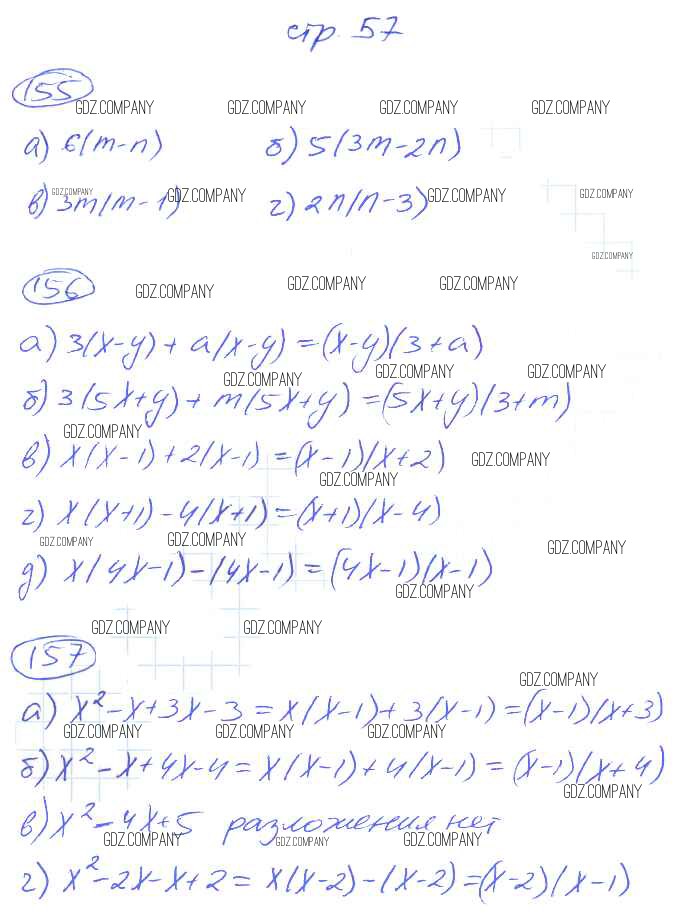 стр. 57
155
GDZ.COMPANY GDZ.COMPANY GDZ.COMPANY GDZ.COMPANY
а) 6(m-n) б) 5(3m-2n)
в) 3m(m-1) г) 2n(n-3)
GDZ.COMPANY GDZ.COMPANY GDZ.COMPANY GDZ.COMPANY
GDZ.COMPANY
156
GDZ.COMPANY GDZ.COMPANY GDZ.COMPANY
а) 3(x-y)+a(x-y)=(x-y)(3+a)
GDZ.COMPANY GDZ.COMPANY GDZ.COMPANY
б) 3(5x+y)+m(5x+y)=(5x+y)(3+m)
GDZ.COMPANY
в) x(x-1)+2(x-1)=(x-1)(x+2)
GDZ.COMPANY
GDZ.COMPANY
г) x(x+1)-4(x+1)=(x+1)(x-4)
GDZ.COMPANY GDZ.COMPANY GDZ.COMPANY
д) x(4x-1)-(4x-1)=(4x-1)(x-1)
GDZ.COMPANY
GDZ.COMPANY GDZ.COMPANY
157
GDZ.COMPANY
а) x²-x+3x-3=x(x-1)+3(x-1)=(x-1)(x+3)
GDZ.COMPANY GDZ.COMPANY GDZ.COMPANY
б) x²-x+4x-4=x(x-1)+4(x-1)=(x-1)(x+4)
GDZ.COMPANY
в) x²-4x+5 разложения нет
GDZ.COMPANY GDZ.COMPANY GDZ.COMPANY
г) x²-2x-x+2=x(x-2)-(x-2)=(x-2)(x-1)